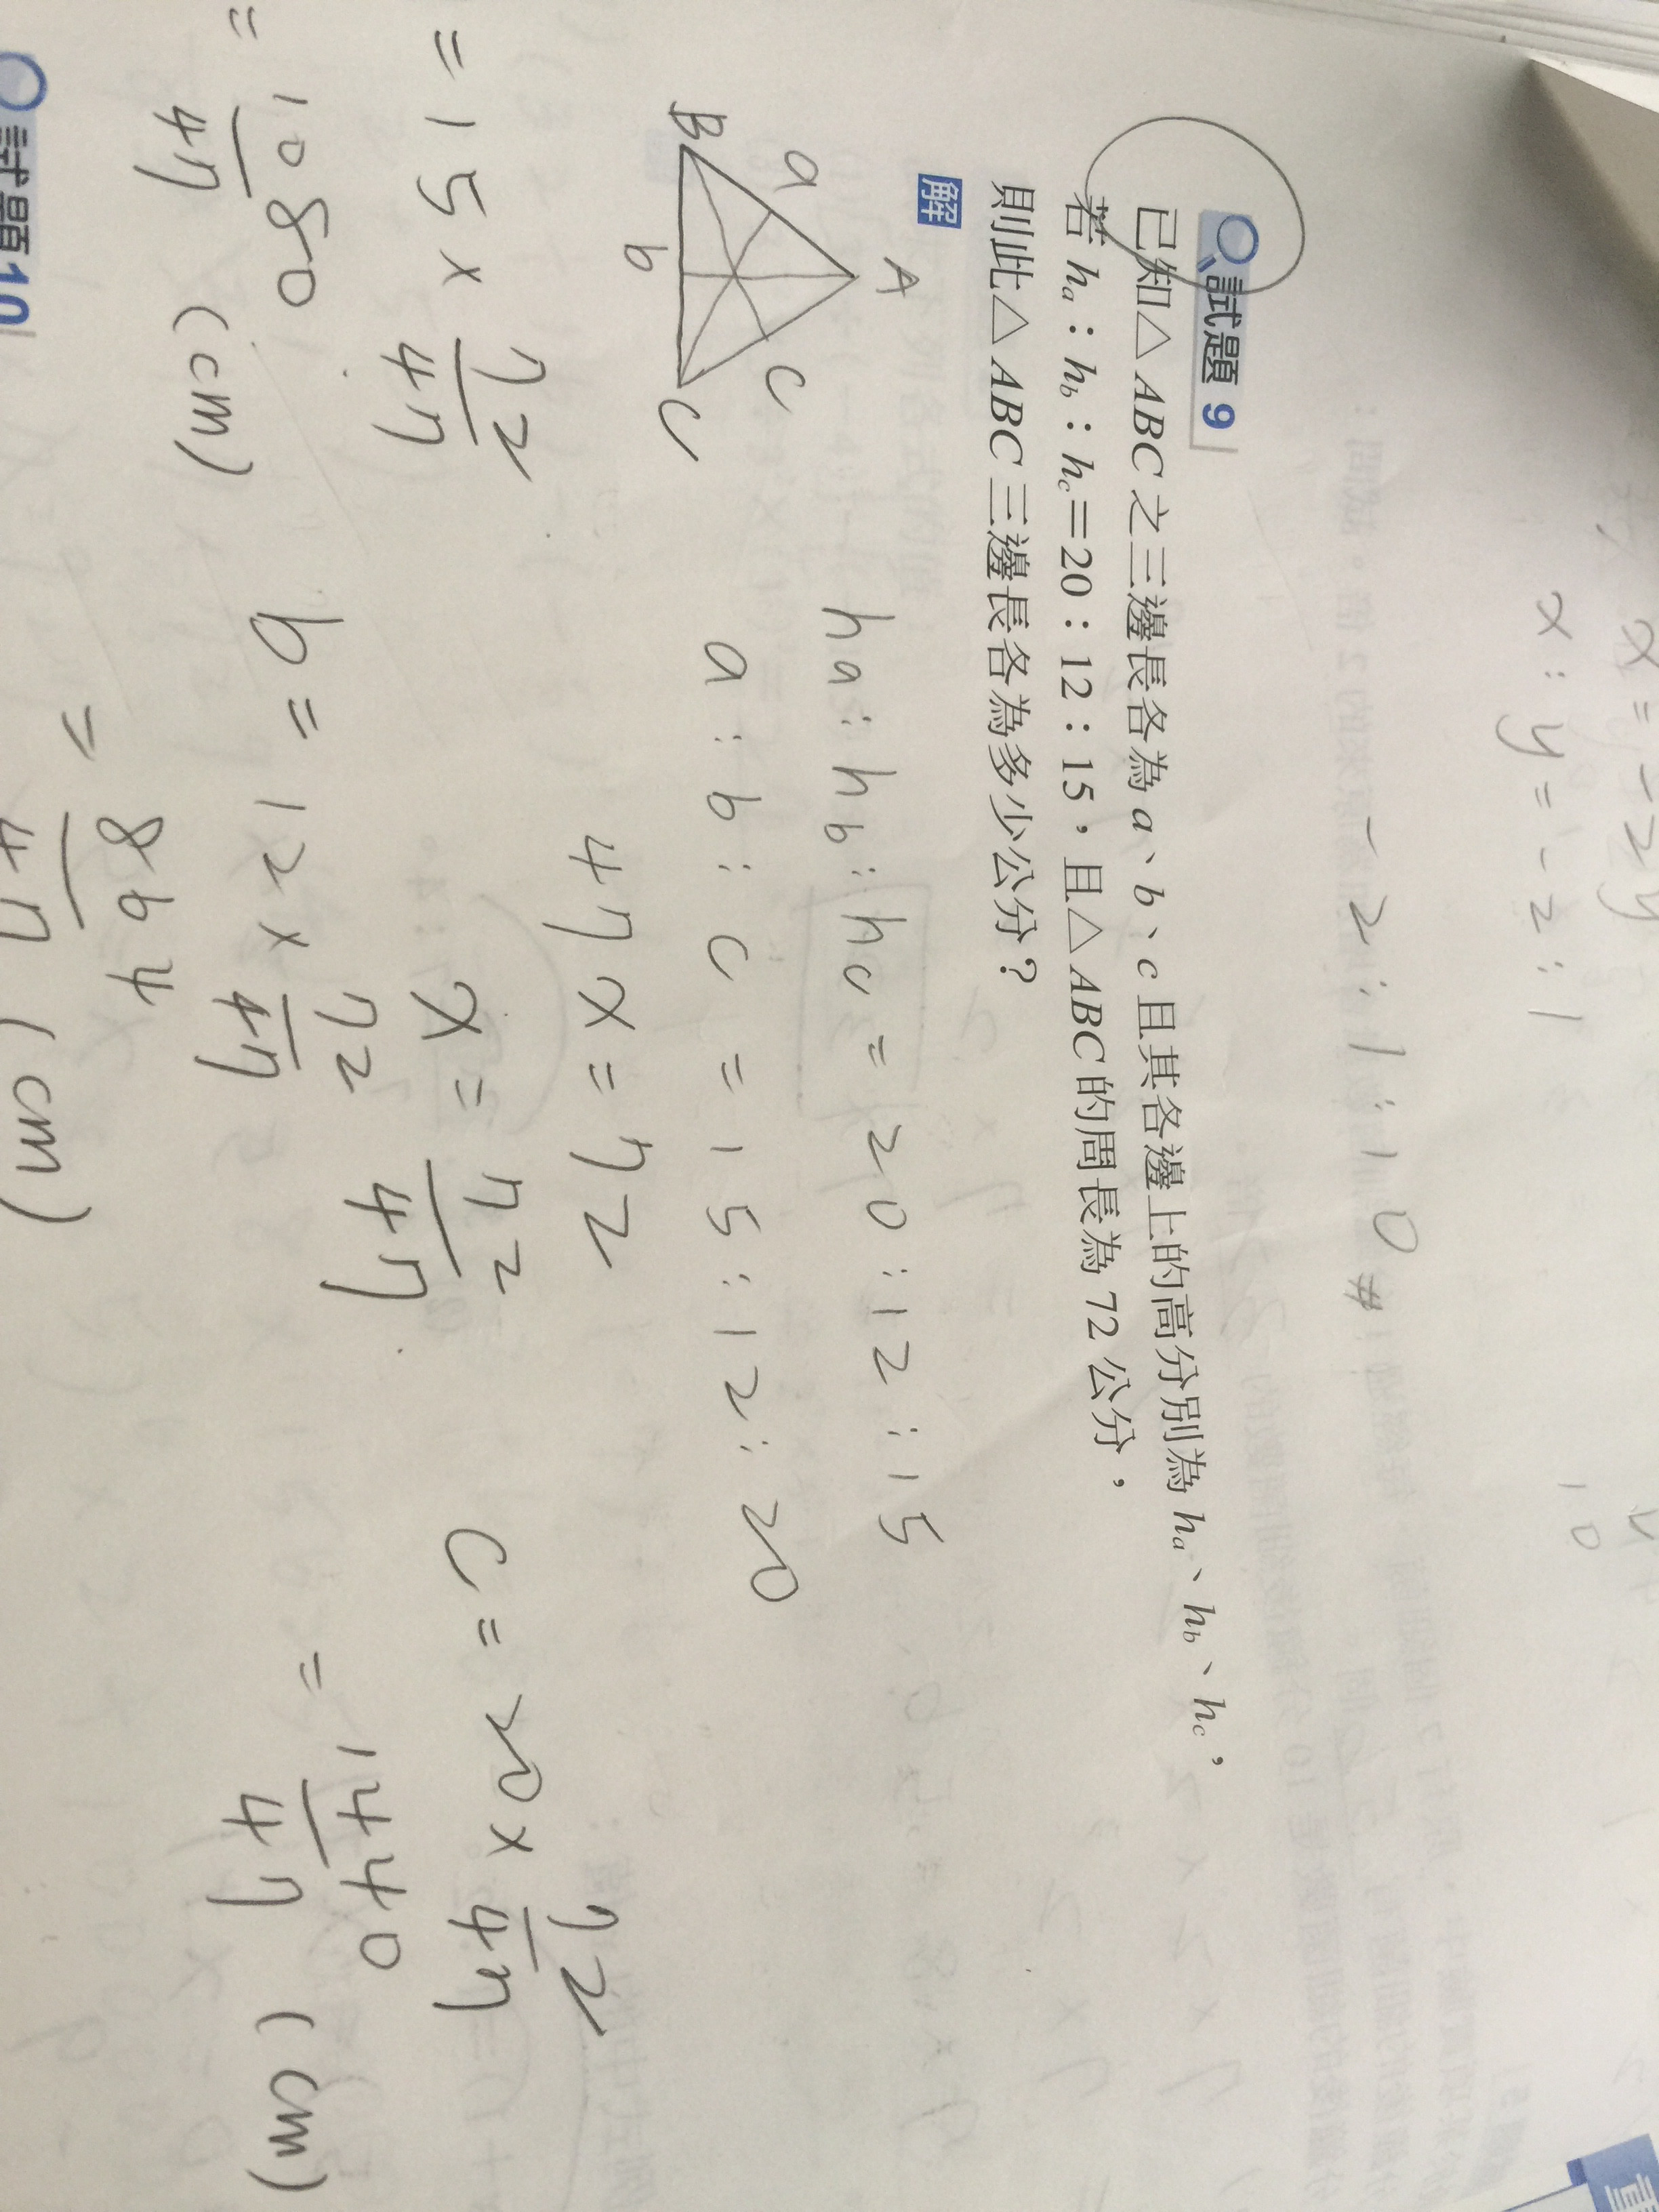 x = -2y
x : y = -2 : 1
10
-2 : 1 : 10 #
試題 9
已知△ABC之三邊長各為a、b、c且其各邊上的高分別為ha、hb、hc，
若ha：hb：hc=20：12：15，且△ABC的周長為72公分，
則此△ABC三邊長各為多少公分？
解
ha : hb : hc = 20 : 12 : 15
a : b : c = 15 : 12 : 20
A
a
c
B
b
C
47x = 72
x = 72/47
= 15 × 72/47
= 1080/47 (cm)
b = 12 × 72/47
= 864/47 (cm)
c = 20 × 72/47
= 1440/47 (cm)
試題10